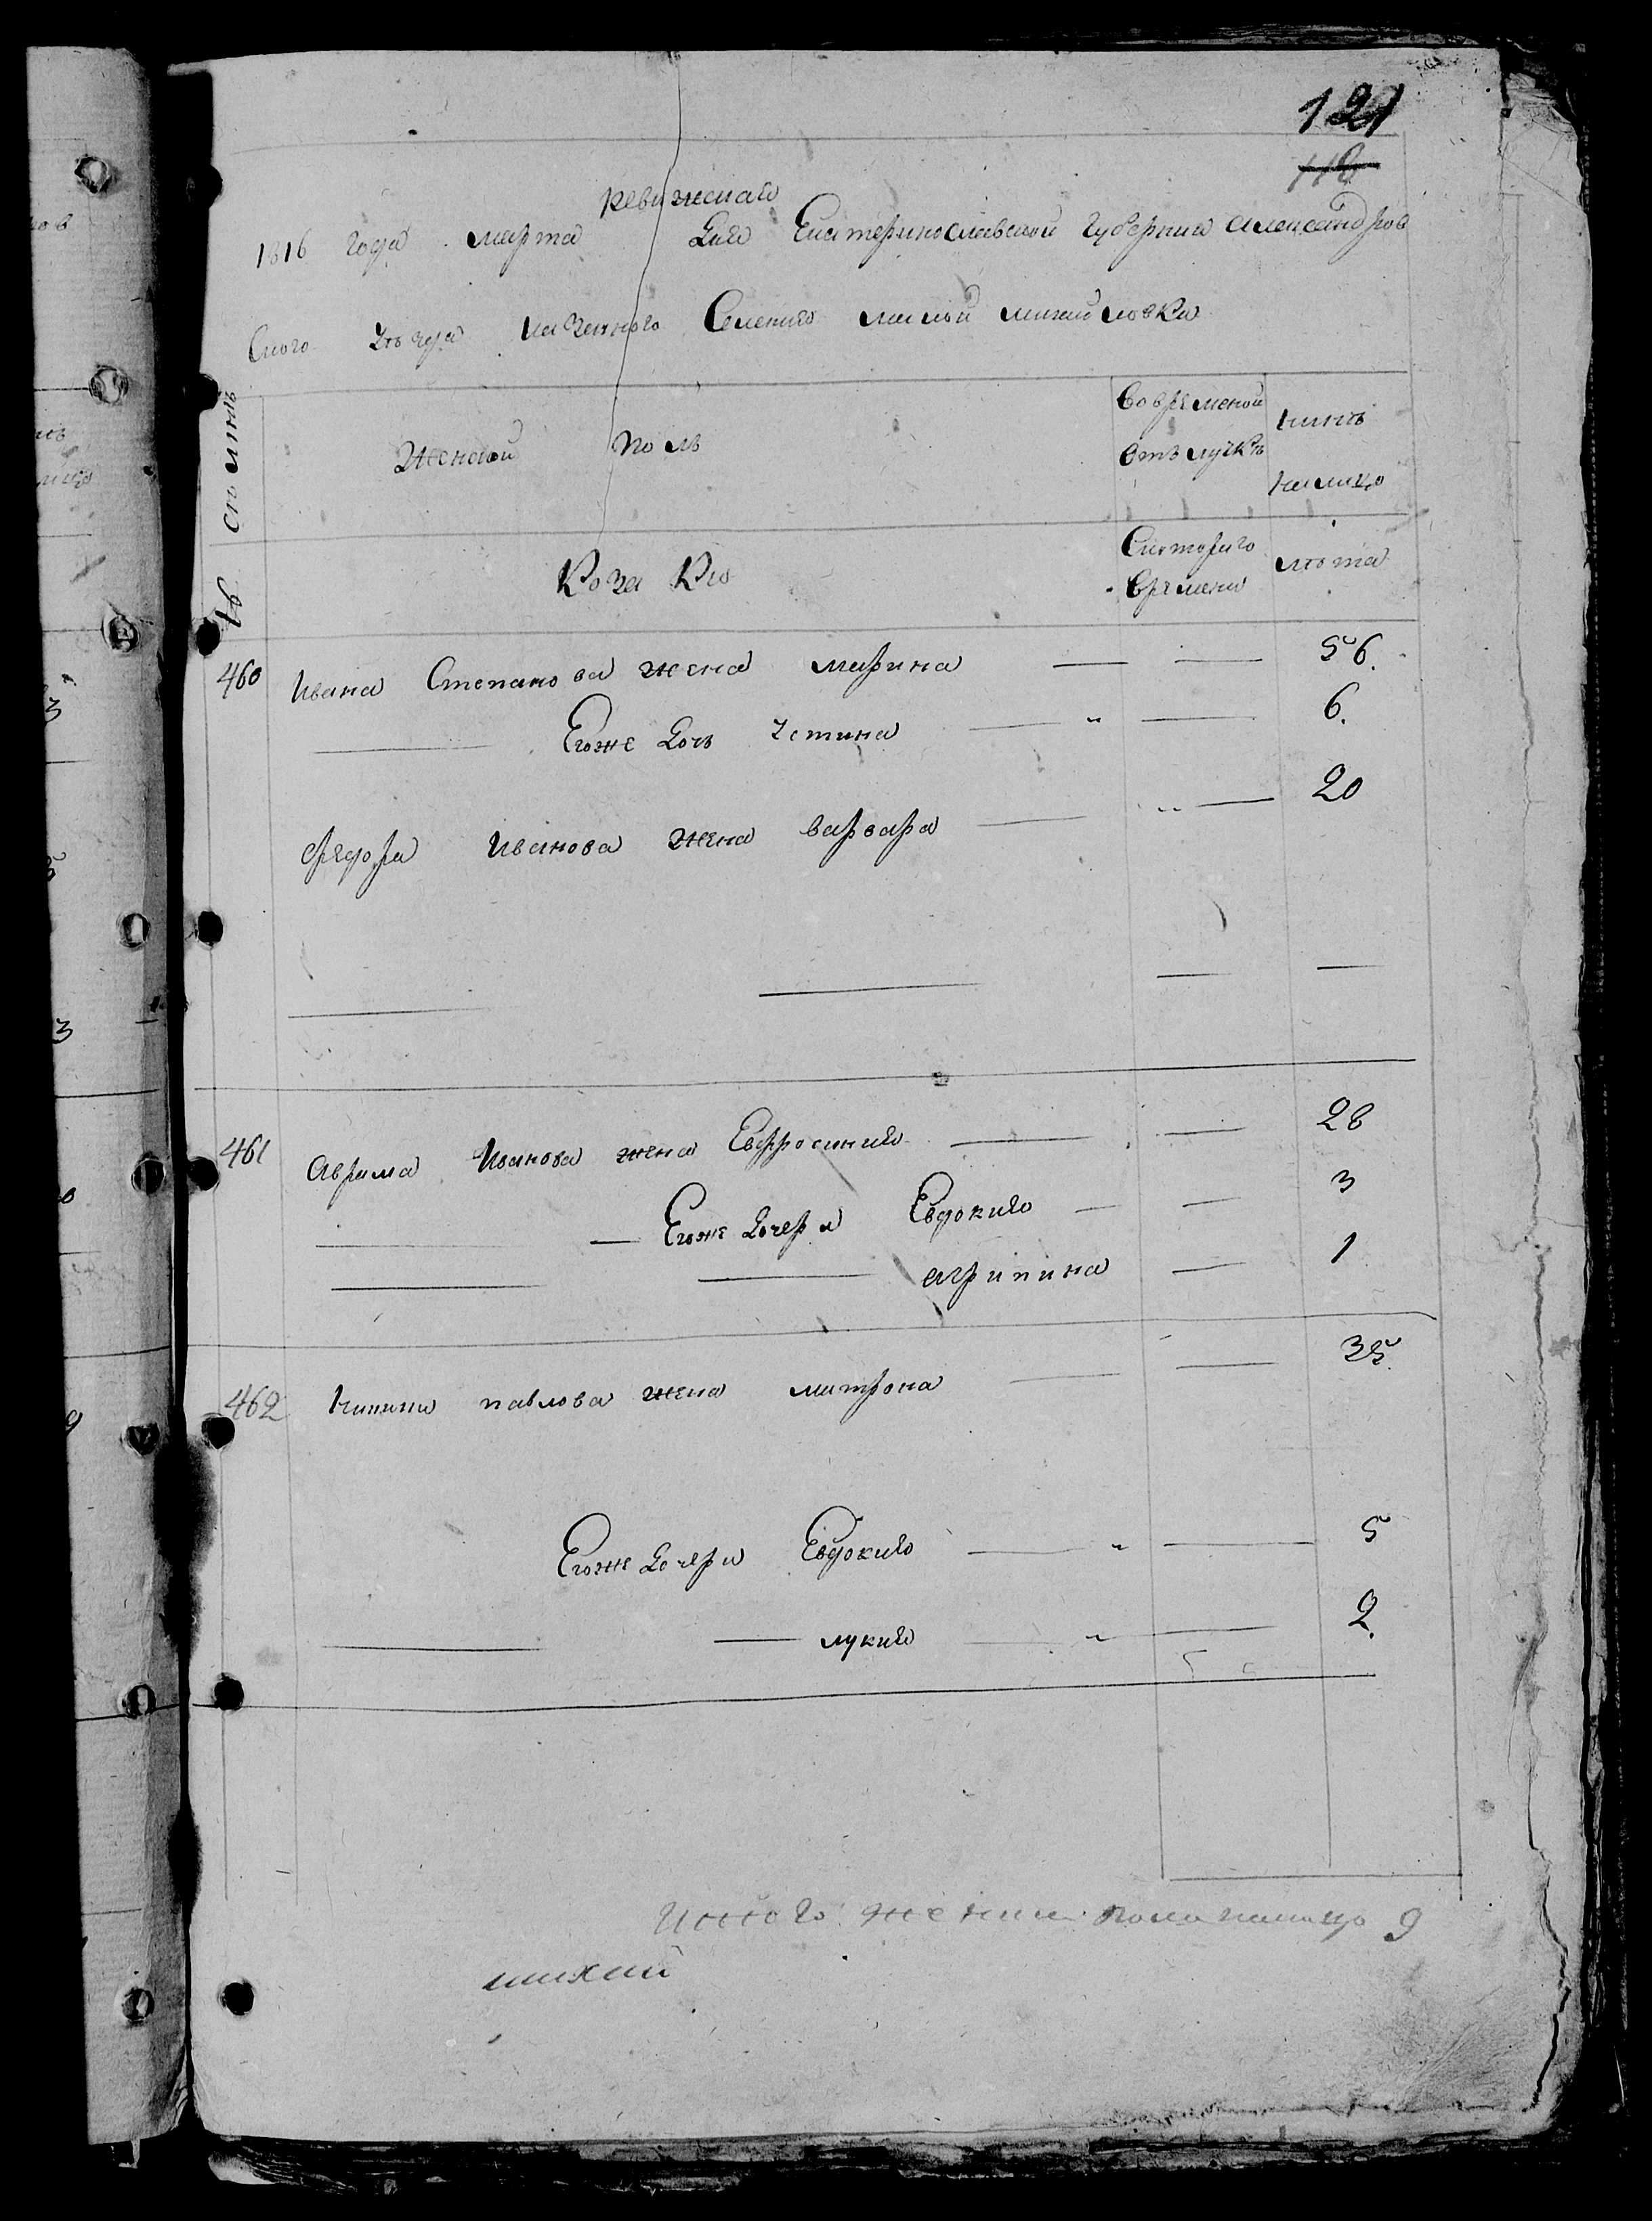 121
118
ревижская
1816 года марта дня Екатеринославской губернии александров
ского уезда казенного Селения малой михайловки
Семьи
женской пол
Вовременой
отлучке
ныне
налицо
Козаки
Скоторого
времени
лета
460 Ивана Степанова жена марина 56.
Егоже дочь устина 6.
федора Иванова жена варвара 20
461 аврама Иванова жена Евфросиния 28
Егоже дочери Евдокия 3
агрипина 1
462 Никиты павлова жена матрона 35.
Егоже дочери Евдокия 5
лукия 2.
Итого женска пола налицо 9
михай